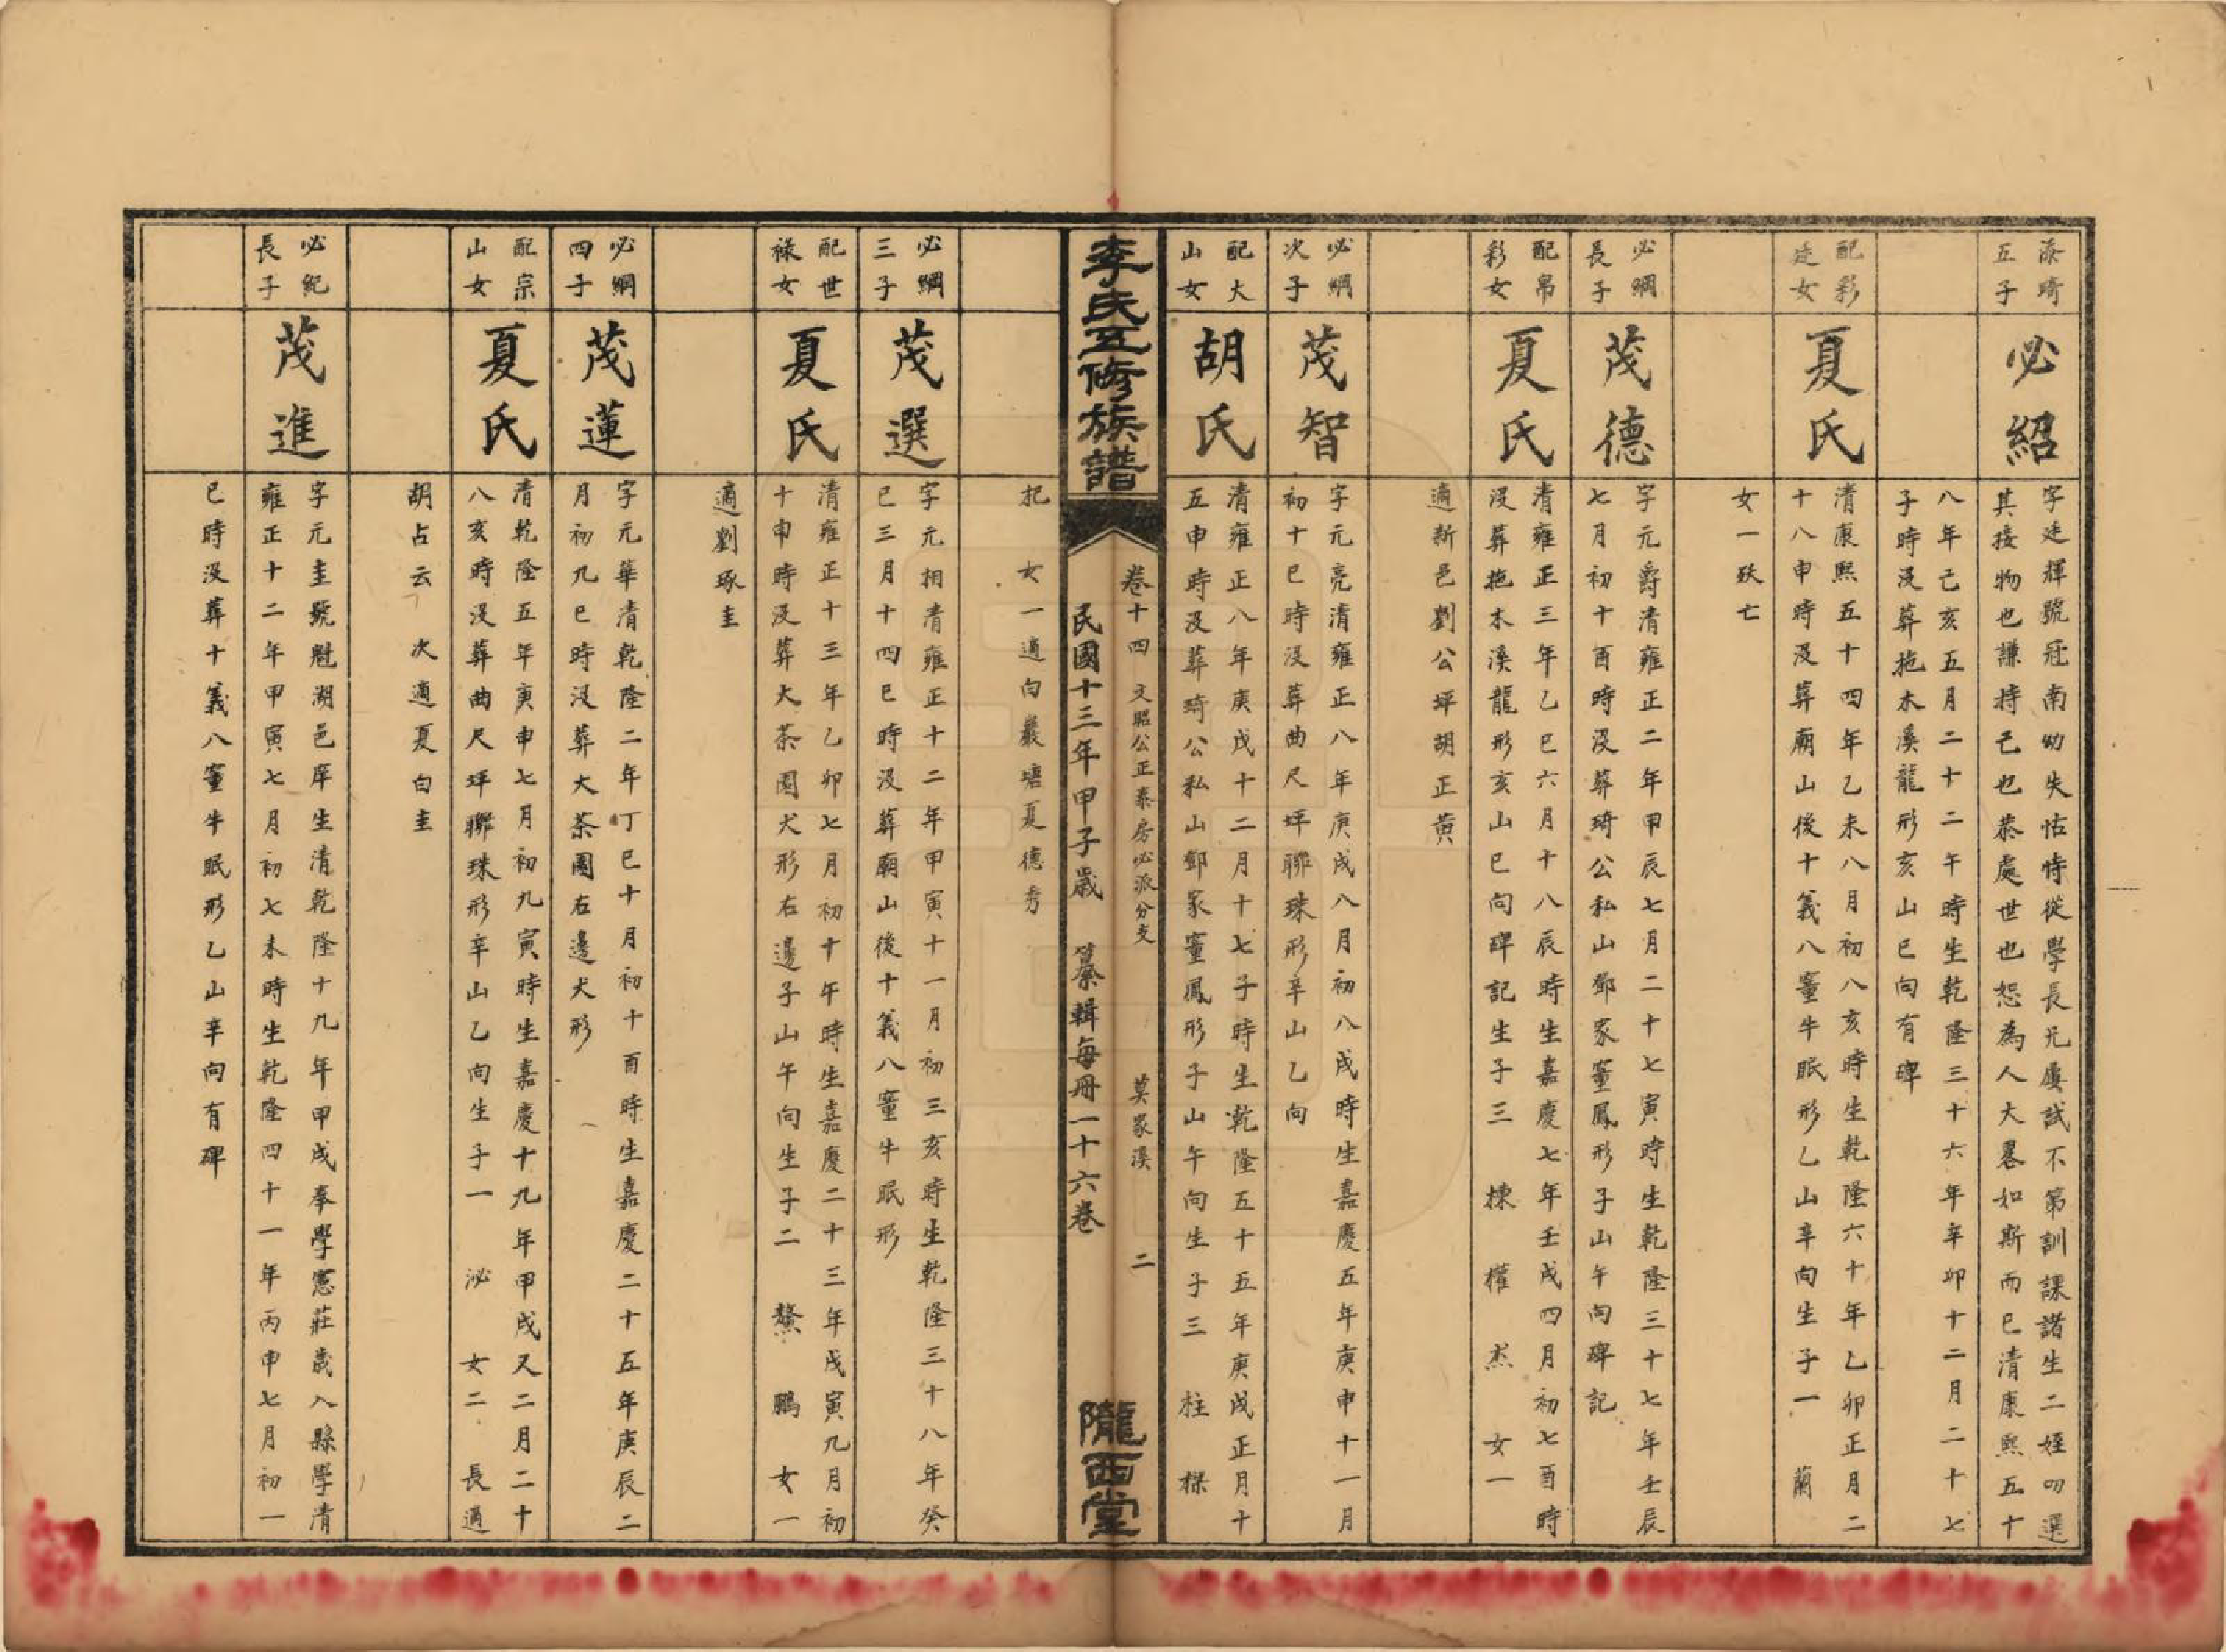 添琦
五子
必紹
字廷輝號冠南幼失怙恃從學長兄屢試不第訓課諸生二姪叨選
其接物也謙持己也恭處世也恕為人大畧如斯而已清康熙五十
八年己亥五月二十二午時生乾隆三十六年辛卯十二月二十七
子時沒葬拖木溪龍形亥山巳向有碑
配彩
廷女
夏氏
清康熙五十四年乙未八月初八亥時生乾隆六十年乙卯正月二
十八申時沒葬廟山後十義八童牛眠形乙山辛向生子一 蘭
女一殀亡
必綱
長子
茂德
字元爵清雍正二年甲辰七月二十七寅時生乾隆三十七年壬辰
七月初十酉時沒葬琦公私山鄧家童鳳形子山午向碑記
配帛
彩女
夏氏
清雍正三年乙巳六月十八辰時生嘉慶七年壬戌四月初七酉時
沒葬拖木溪龍形亥山巳向碑記生子三 棟 權 杰 女一
適新邑劉公坪胡正黄
必綱
次子
茂智
字元亮清雍正八年庚戌八月初八戌時生嘉慶五年庚申十一月
初十巳時沒葬曲尺坪聯珠形辛山乙向
配大
山女
胡氏
清雍正八年庚戌十二月十七子時生乾隆五十五年庚戌正月十
五申時沒葬琦公私山鄧家童鳳形子山午向生子三 柱 樑
李氏五修族譜
卷十四 文昭公正泰房必派分支 莫家溪 二
民國十三年甲子歲 纂輯每冊一十六卷
隴西堂
杞 女一適白巖塘夏德秀
必綱
三子
茂選
字元相清雍正十二年甲寅十一月初三亥時生乾隆三十八年癸
巳三月十四巳時沒葬廟山後十義八童牛眠形
配世
祿女
夏氏
清雍正十三年乙卯七月初十午時生嘉慶二十三年戊寅九月初
十申時沒葬大茶園犬形右邊子山午向生子二 鰲 鵬 女一
適劉琢圭
必綱
四子
茂蓮
字元華清乾隆二年丁巳十月初十酉時生嘉慶二十五年庚辰二
月初九巳時沒葬大茶園右邊犬形
配宗
山女
夏氏
清乾隆五年庚申七月初九寅時生嘉慶十九年甲戌又二月二十
八亥時沒葬曲尺坪聯珠形辛山乙向生子一 泌 女二 長適
胡占云 次適夏白圭
必紀
長子
茂進
字元圭號魁湖邑庠生清乾隆十九年甲戌奉學憲莊歲入縣學清
雍正十二年甲寅七月初七未時生乾隆四十一年丙申七月初一
巳時沒葬十義八童牛眠形乙山辛向有碑